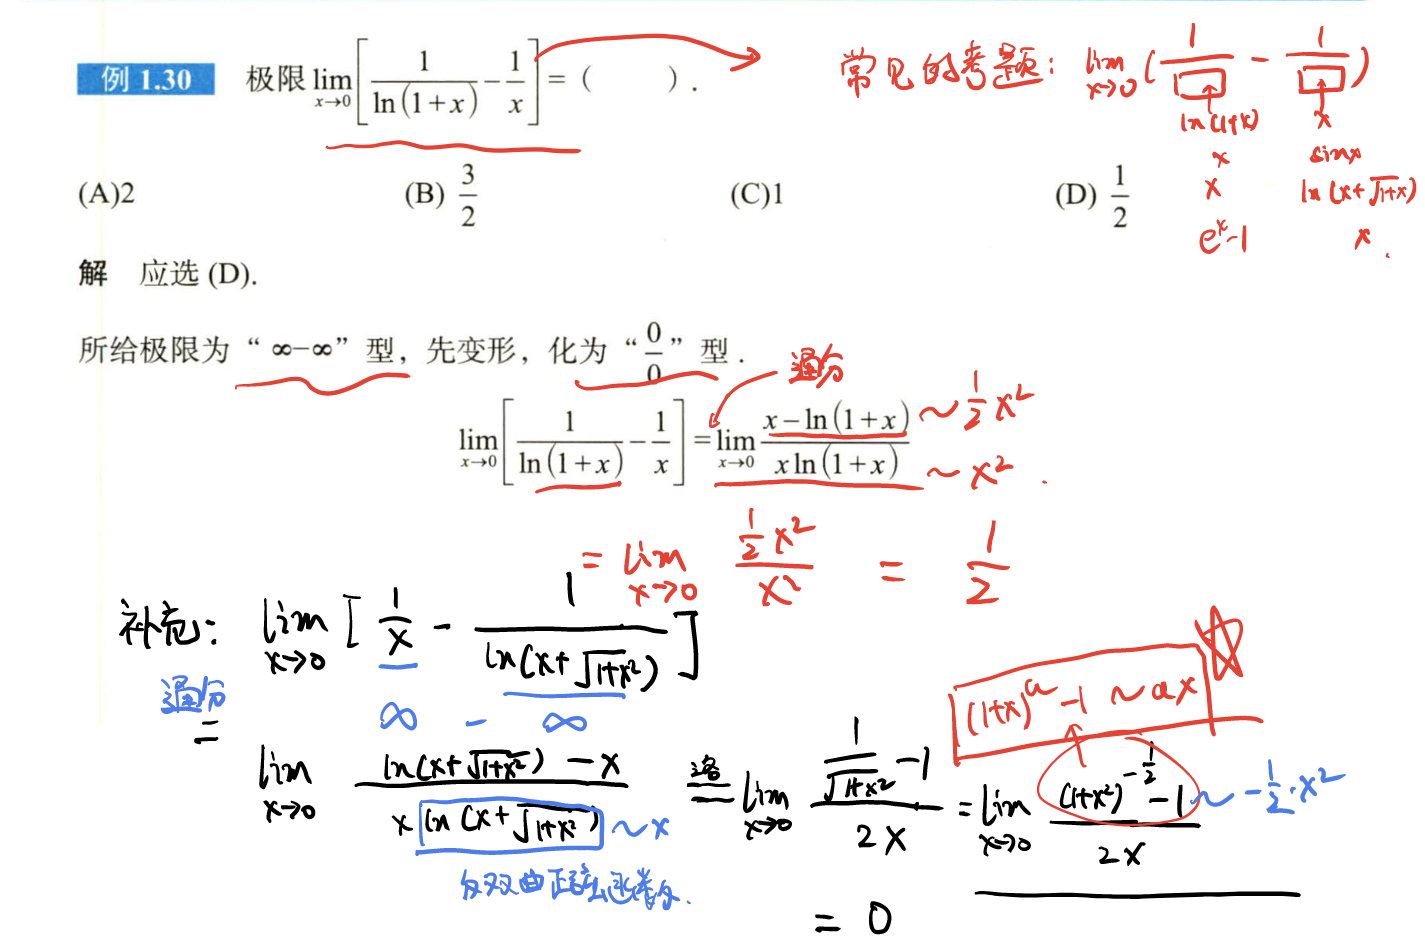 例 1.30 极限 lim x→0 [ 1/ln(1+x) − 1/x ] = ( ).
常见的考题: lim x→0 ( 1/□ − 1/□ )
ln(1+x) x
x sinx
x ln(x+√1+x)
e^x-1 x.
(A)2 (B) 3/2 (C)1 (D) 1/2
解 应选 (D).
所给极限为 “ ∞−∞” 型, 先变形, 化为 “ 0/0 ” 型.
通分
lim x→0 [ 1/ln(1+x) − 1/x ] = lim x→0 (x−ln(1+x))/(x ln(1+x))
~ 1/2 x²
~ x².
= lim x→0 (1/2 x²)/x² = 1/2
补充: lim x→0 [ 1/x - 1/ln(x+√1+x²) ]
∞ - ∞
通分
(1+x)^a -1 ~ ax
= lim x→0 (ln(x+√1+x²) - x)/(x ln(x+√1+x²)) 洛= lim x→0 (1/√1+x² -1)/2x = lim x→0 ((1+x²)^-1/2 -1)/2x
~ x
~ -1/2·x²
反双曲正弦函数.
= 0